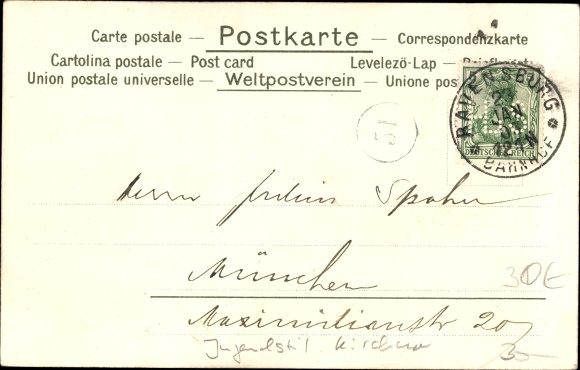 Carte postale — Postkarte — Correspondenzkarte
Cartolina postale — Post card Levelezö-Lap —
Union postale universelle — Weltpostverein — Unione pos
RAVENSBURG
JAN
BAHNHOF
DEUTSCHES REICH
Herrn Julius Spohn
München
Maximilianstr 20
Jugendstil Kirchner
30€